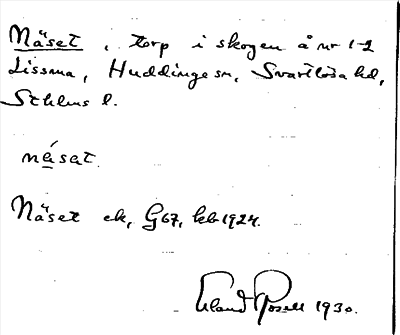 Näset, torp i skogen å nr 1-2
Lissma, Huddinge sn, Svartlösa hd,
Sthlms l.
nǻsat.
Näset ek, G67, hb 1924.
Erland Rosell 1930.